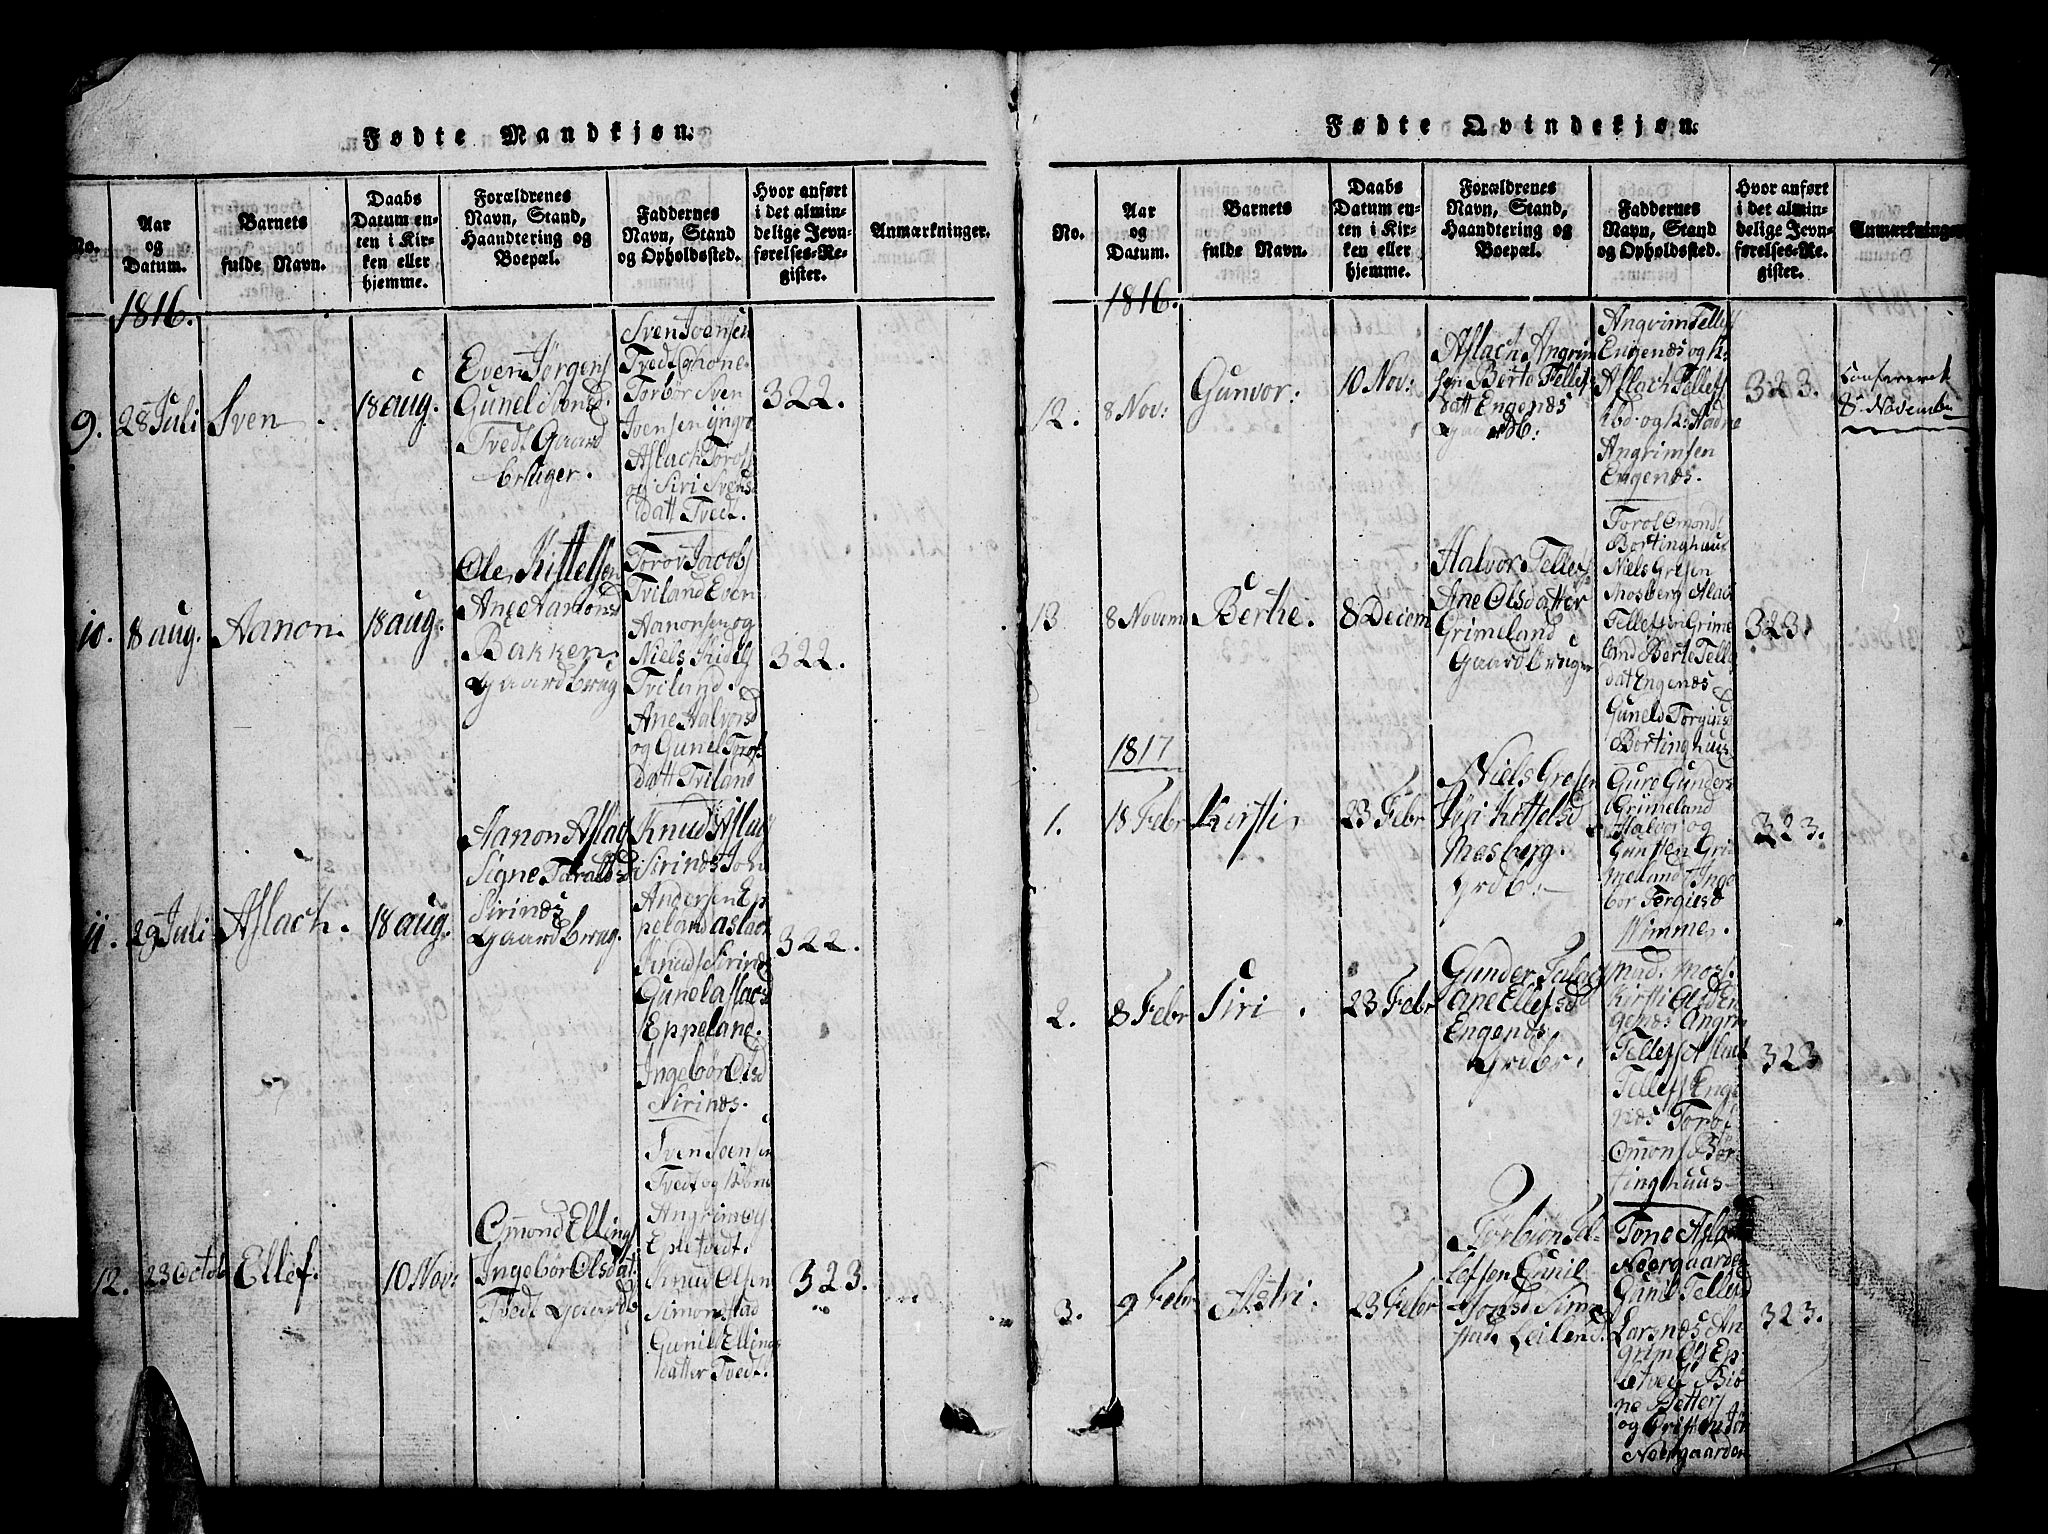 Fødte Mandkjøn.
No.
Aar
og
Datum.
Barnets
fulde Navn.
Daabs
Datum en-
ten i Kir-
ken eller
hjemme.
Forældrenes
Navn, Stand,
Haandtering og
Boepæl.
Faddernes
Navn, Stand
og Opholdssted.
Hvor anført
i det almin-
delige Jevn-
førelses-Re-
gister.
Anmærkninger.
1816.
9.
28 Juli
Sven
18 aug.
Even Jørgens
Gunel
Tvedt Gaard
bruger.
Sven Joensen
Tvedt
Torbør Sven
Joensen yngre
Aslach Torols
og Siri Svens
datt Tvedt.
322.
10.
8 aug.
Aanon.
18 aug.
Ole Kittelsen
Ane Aanonsd
Bakken
Gaardbrug
Torov Jacobs
Triland Even
Aanonsen og
Niels
Triland.
Ane Halvorsd
og Gunel Torols
datt Triland
322.
11.
29 Juli
Aslach.
18 aug.
Aanon Aslags
Signe Taraldsd
Sirinæs
Gaardbrug.
Knud Aslag
Sirinæs Jon
Andersen Ep
peland aslach
Knuds Sirinæs
Gunel aslacs
Eppeland.
Ingebør Olsd
Sirinæs.
322.
12.
23 Octob
Ellef.
10 Nov:
Omond Ellings
Ingebør Olsdat.
Tvedt Gaardb
Sven Joensen
Tvedt og
Angrim
Epletvedt.
Knud Olsen
Simonstad
Gunil Ellings
datter Tvedt.
323.
Fødte Qvindekjøn.
No.
Aar
og
Datum.
Barnets
fulde Navn.
Daabs
Datum en-
ten i Kir-
ken eller
hjemme.
Forældrenes
Navn, Stand,
Haandtering og
Boepæl.
Faddernes
Navn, Stand
og Opholdssted.
Hvor anført
i det almin-
delige Jevn-
førelses-Re-
gister.
Anmærkninger
1816.
12.
8 Nov:
Gunvor:
10 Nov:
Aslach Angrim
sen Berte Tellefs
datt Engenæs
Angrim Tellefs
Engenæs og K:
Aslach Tellefs
ibd og K: Aadne
Angrimsen
Engenæs.
323.
8 November
13
8 Novem
Berthe.
8 Decem
Halvor Tellefs
Ane Olsdatter
Grimeland
Gaardbruger
Torol Omonds
Bortinghuus
Niels Gresen
Mosberg Aslac
Tellefsen Grime
land Berte Tellefs
dat Engenæs
Gunild Torgiusd
Bortinghuus
323.
1817
1.
18 Febr
Kirsti
23 Febr
Niels Gresen
Kittelsd
Mosberg.
Grdb.
Guro Gunders
Grimeland
Halvor og
Gunsten Gri
meland Inge
bor Torgiusd
Nimme.
323.
2.
8 Febr
Siri.
23 Febr
Gunder
Ane Ellefsd
Engenæs.
Grdbr.
Mad. Most.
Kirsti Olsd En
genæs Angrim
Tellefs Aslach
Tellefs Enge
næs Torol
Omons Bør
tinghuus.
323
3.
9 Febr
Astri.
23 Febr
Torbiøn Tel
lefsen Gunil
Sim
stad Leilend.
Tone Aslac
Neergaarden
Gunil Tellefsd
Larsnæs An
grim Ols Ep
letvedt Biø
ne Petters
og Cristen Jør
Neergaarden
323.